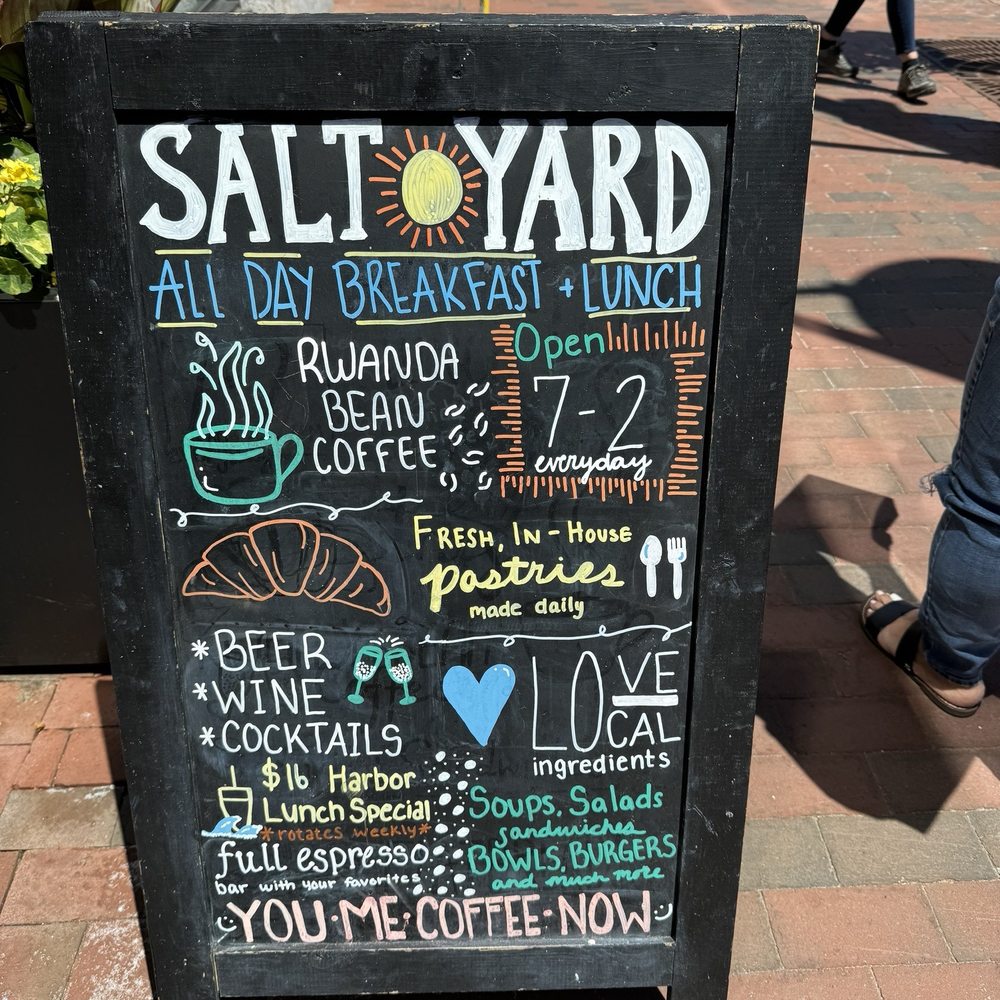 SALT YARD
ALL DAY BREAKFAST + LUNCH
RWANDA
BEAN
COFFEE
Open
7-2
everyday
FRESH, IN-HOUSE
pastries
made daily
*BEER
*WINE
*COCKTAILS
LOVE
LOCAL
ingredients
$16 Harbor
Lunch Special
*rotates weekly*
full espresso
bar with your favorites
SOUPS, Salads
sandwiches
BOWLS, BURGERS
and much more
YOU·ME·COFFEE·NOW